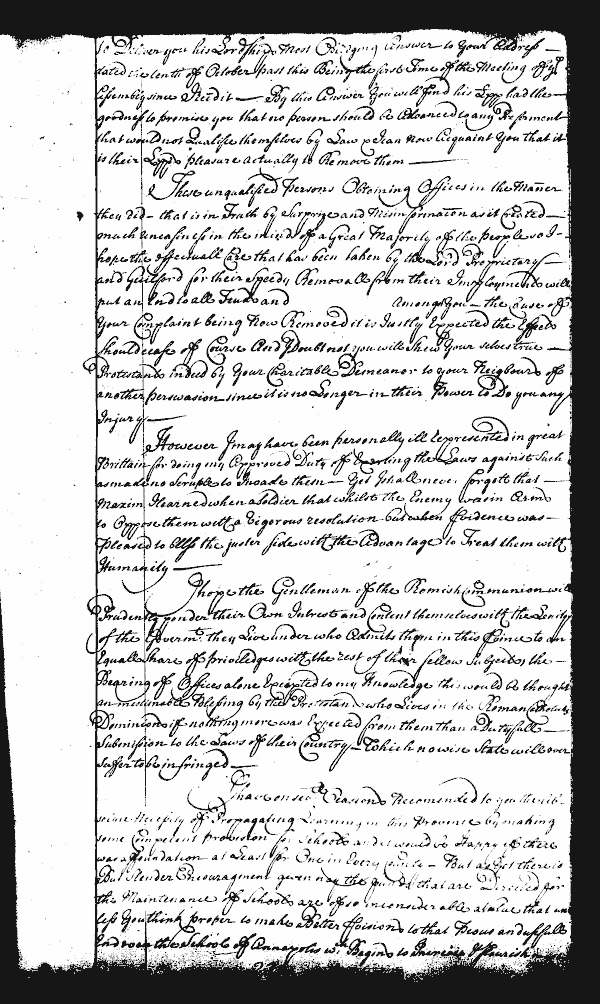 to Deliver you his Lordships most Obliging Answer to your Address
dated the tenth of October past this Being the first Time of the Meeting of ye
Assembly since Recd it — By this Answer You will find his Lpp had the
goodness to promise you that no person should be Advanced to any
that would not Qualify themselves by Law & I can now Acquaint You that it
is their Lpps pleasure actually to Remove them —
These unqualified Persons Obtaining Offices in the Maner
they did — that is in Truth by Surprize and Missinformation as it Created
much Uneasiness in the minds of a Great Majority of the people so I
hope the effectuall Care that has been taken by the Lord Proprietary
and Guilford for their Speedy Removall from their Imployments will
put an End to all Feuds and Amongst You — the Cause of
Your Complaint being now Removed it is Justly Expected the Effects
should cease of Course And I Doubt not you will shew Your selves true
Protestants indeed by Your Charitable Demeanor to your Neigbours of
another Perswasion since it is no Longer in their Power to Do you any
Injury —
However I may have been personally ill represented in great
Brittain for doing my Approved Duty of Exerting the Laws against such
as made no scruple to Invade them — Yet I shall never forgett that
Maxim I learned when a Soldier that whilst the Enemy was in Arms
to Oppose them with a Vigorous resolution but when Evidence was
pleased to Bless the juster side with the Advantage to Treat them with
Humanity —
I hope the Gentlemen of the Romish Communion will
Prudently ponder their Own Intrests and Content themselves with the Lenity
of the Governmt. they Live under who Admits them in this Province to an
Equall share of priviledges with the rest of their fellow Subjects the
Bearing of Offices alone Excepted to my Knowledge this would be thought
an inestimable Blessing by the Protestants who Lives in the Roman Catholick
Dominions if nothing more was Expected from them than a Dutyfull
Submission to the Laws of their Country — Which no wise State will ever
suffer to be infringed —
I have on sevll Reasons Recomended to you the
Necessity of Propagating Learning in this Province by making
some Competent provision for Schools and it would be Happy if there
was a foundation at Least for One in Every County — But as Yet there is
But Slender Encouragement given nay the funds that are Directed for
the Maintenance of Schools are of so inconsiderable a value that un
less You think proper to make Better Provision to that Pious and usefull
End even the School of Annapolis wch. Begins to Increase & flourish